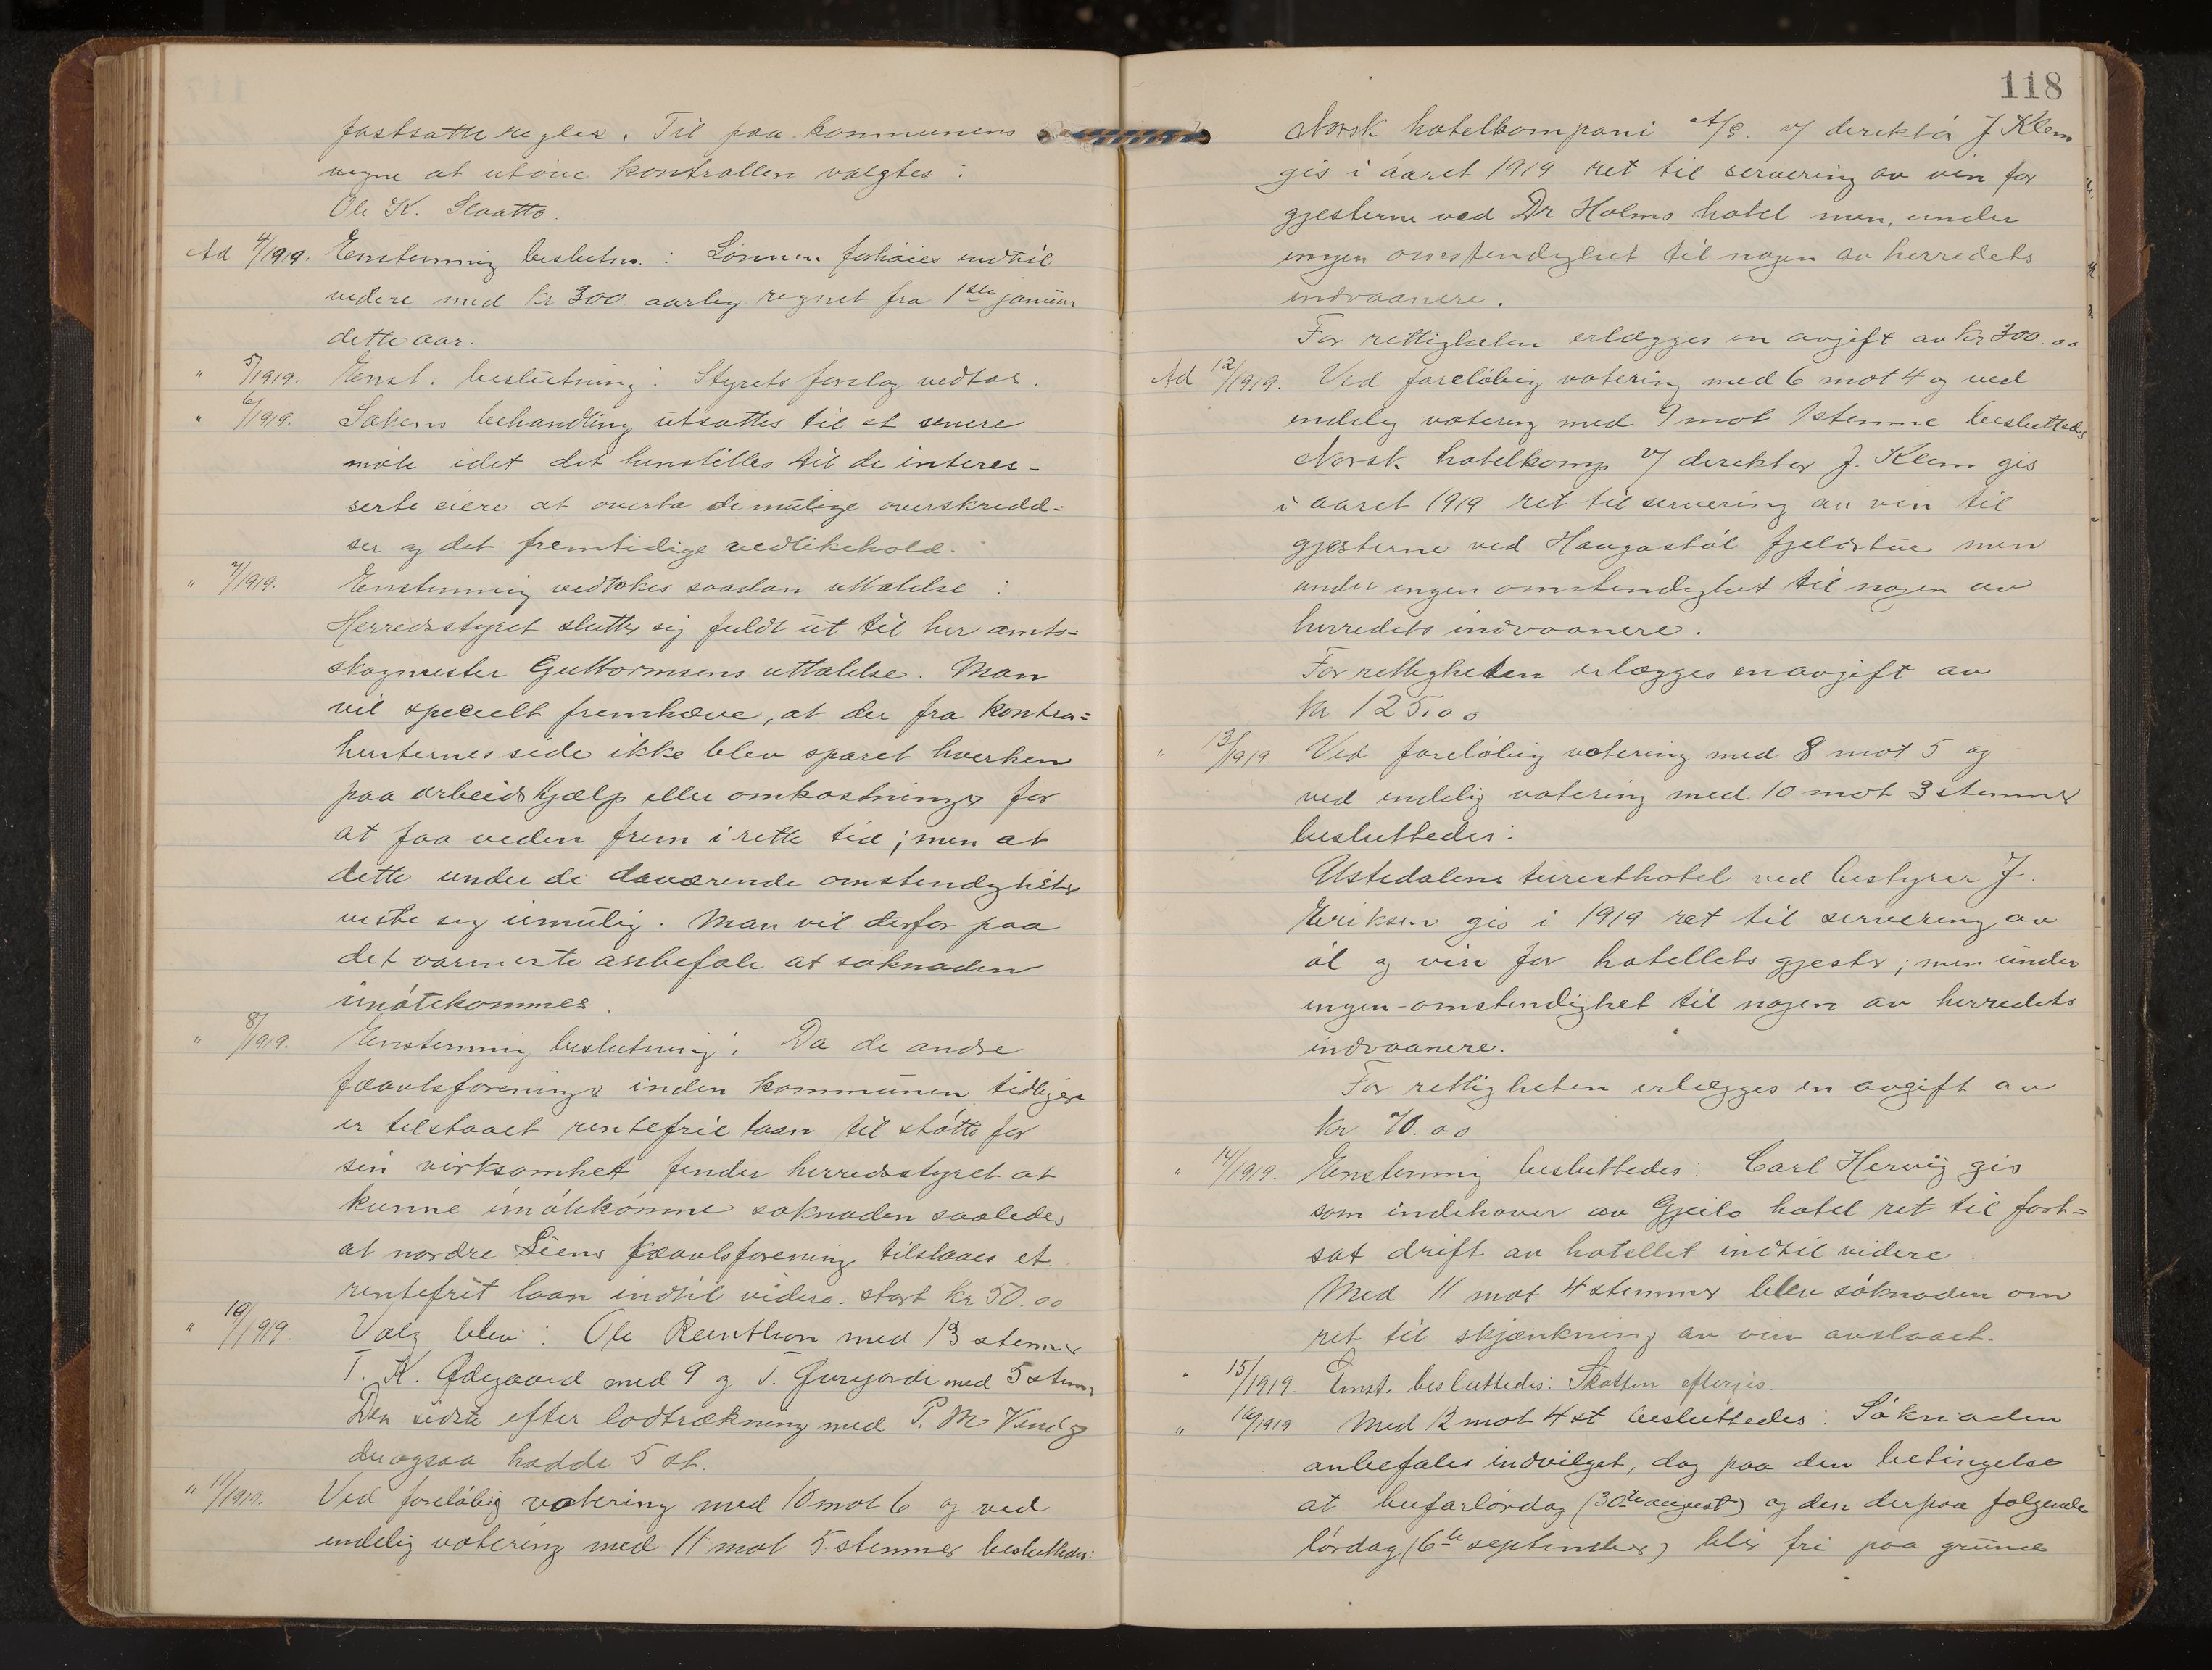 fastsatte regler. Til paa kommunens
vegne at utøve kontrollen valgtes:
Ole K. Slaatto.
Ad 4/1919. Enstemmig beslutn.: Lønnen forhøies indtil
videre med kr 300 aarlig regnet fra 1ste januar
dette aar.
" 5/1919. Enst. beslutning: Styrets forslag vedtat.
" 6/1919. Sakens behandling utsattes til et senere
møte idet det henstilles til de interes-
serte eiere at overta de mulige overskridel-
ser og det fremtidige vedlikehold.
" 7/1919. Enstemmig vedtokes saadan uttalelse:
Herredsstyret slutter sig fuldt ut til her amts-
skogmester Guttormsens uttalelse. Man
vil specielt fremhæve, at der fra kontra-
henternes side ikke blev sparet hverken
paa arbeidshjælp eller omkostninger for
at faa veden frem i rette tid; men at
dette under de daværende omstendigheter
viste sig umulig. Man vil derfor paa
det varmeste anbefale at søknaden
imøtekommes.
" 8/1919. Enstemmig beslutning: Da de andre
fæavlsforeninger inden kommunen tidligere
er tilstaaet rentefrie laan til støtte for
sin virksomhet finder herredsstyret at
kunne imøtekomme søknaden saaledes
at nordre Liens fæavlsforening tilstaaes et
rentefrit laan indtil videre stort kr 50.00
" 10/1919. Valg blev: Ole Reinthon med 13 stemmer
T. K. Ødegaard med 9 og T. Guryorde med 5 stem.
Den sidste efter lodtrækning med P. M.
der ogsaa hadde 5 st.
" 11/1919. Ved foreløbig votering med 10 mot 6 og ved
endelig votering med 11 mot 5 stemmer besluttedes:
118
Norsk hotelkompani A/S. v/ direktør J Klem
gis i aaret 1919 ret til servering av vin for
gjesterne ved Dr Holms hotel men, under
ingen omstendighet til nogen av herredets
indvaanere.
For rettigheten erlægges en avgift av kr 300.00
Ad 12/1919. Ved foreløbig votering med 6 mot 4 og ved
endelig votering med 9 mot 1 stemme besluttedes
Norsk hotelkomp v/ direktør J. Klem gis
i aaret 1919 ret til servering av vin til
gjesterne ved Haugastøl fjeldstue men
under ingen omstendighet til nogen av
herredets indvaanere.
For rettigheten erlægges en avgift av
kr 125.00
" 13/1919. Ved foreløbig votering med 8 mot 5 og
ved endelig votering med 10 mot 3 stemmer
besluttedes:
Ustedalens turisthotel ved bestyrer J.
Eriksen gis i 1919 ret til servering av
øl og vin for hotellets gjester; men under
ingen omstendighet til nogen av herredets
indvaanere.
For rettigheten erlægges en avgift av
kr 70.00
" 14/1919. Enstemmig besluttedes: Carl Hervig gis
som indehaver av Gjeilo hotel ret til fort-
sat drift av hotellet indtil videre.
Med 11 mot 4 stemmer blev søknaden om
ret til skjænkning av vin avslaaet.
" 15/1919. Enst. besluttedes: Skatten eftergis.
" 16/1919 Med 12 mot 4 st besluttedes: Søknaden
anbefales indvilget, dog paa den betingelse
at bufarlørdag (30te august) og den derpaa følgende
lørdag (6te september) blir fri paa grund